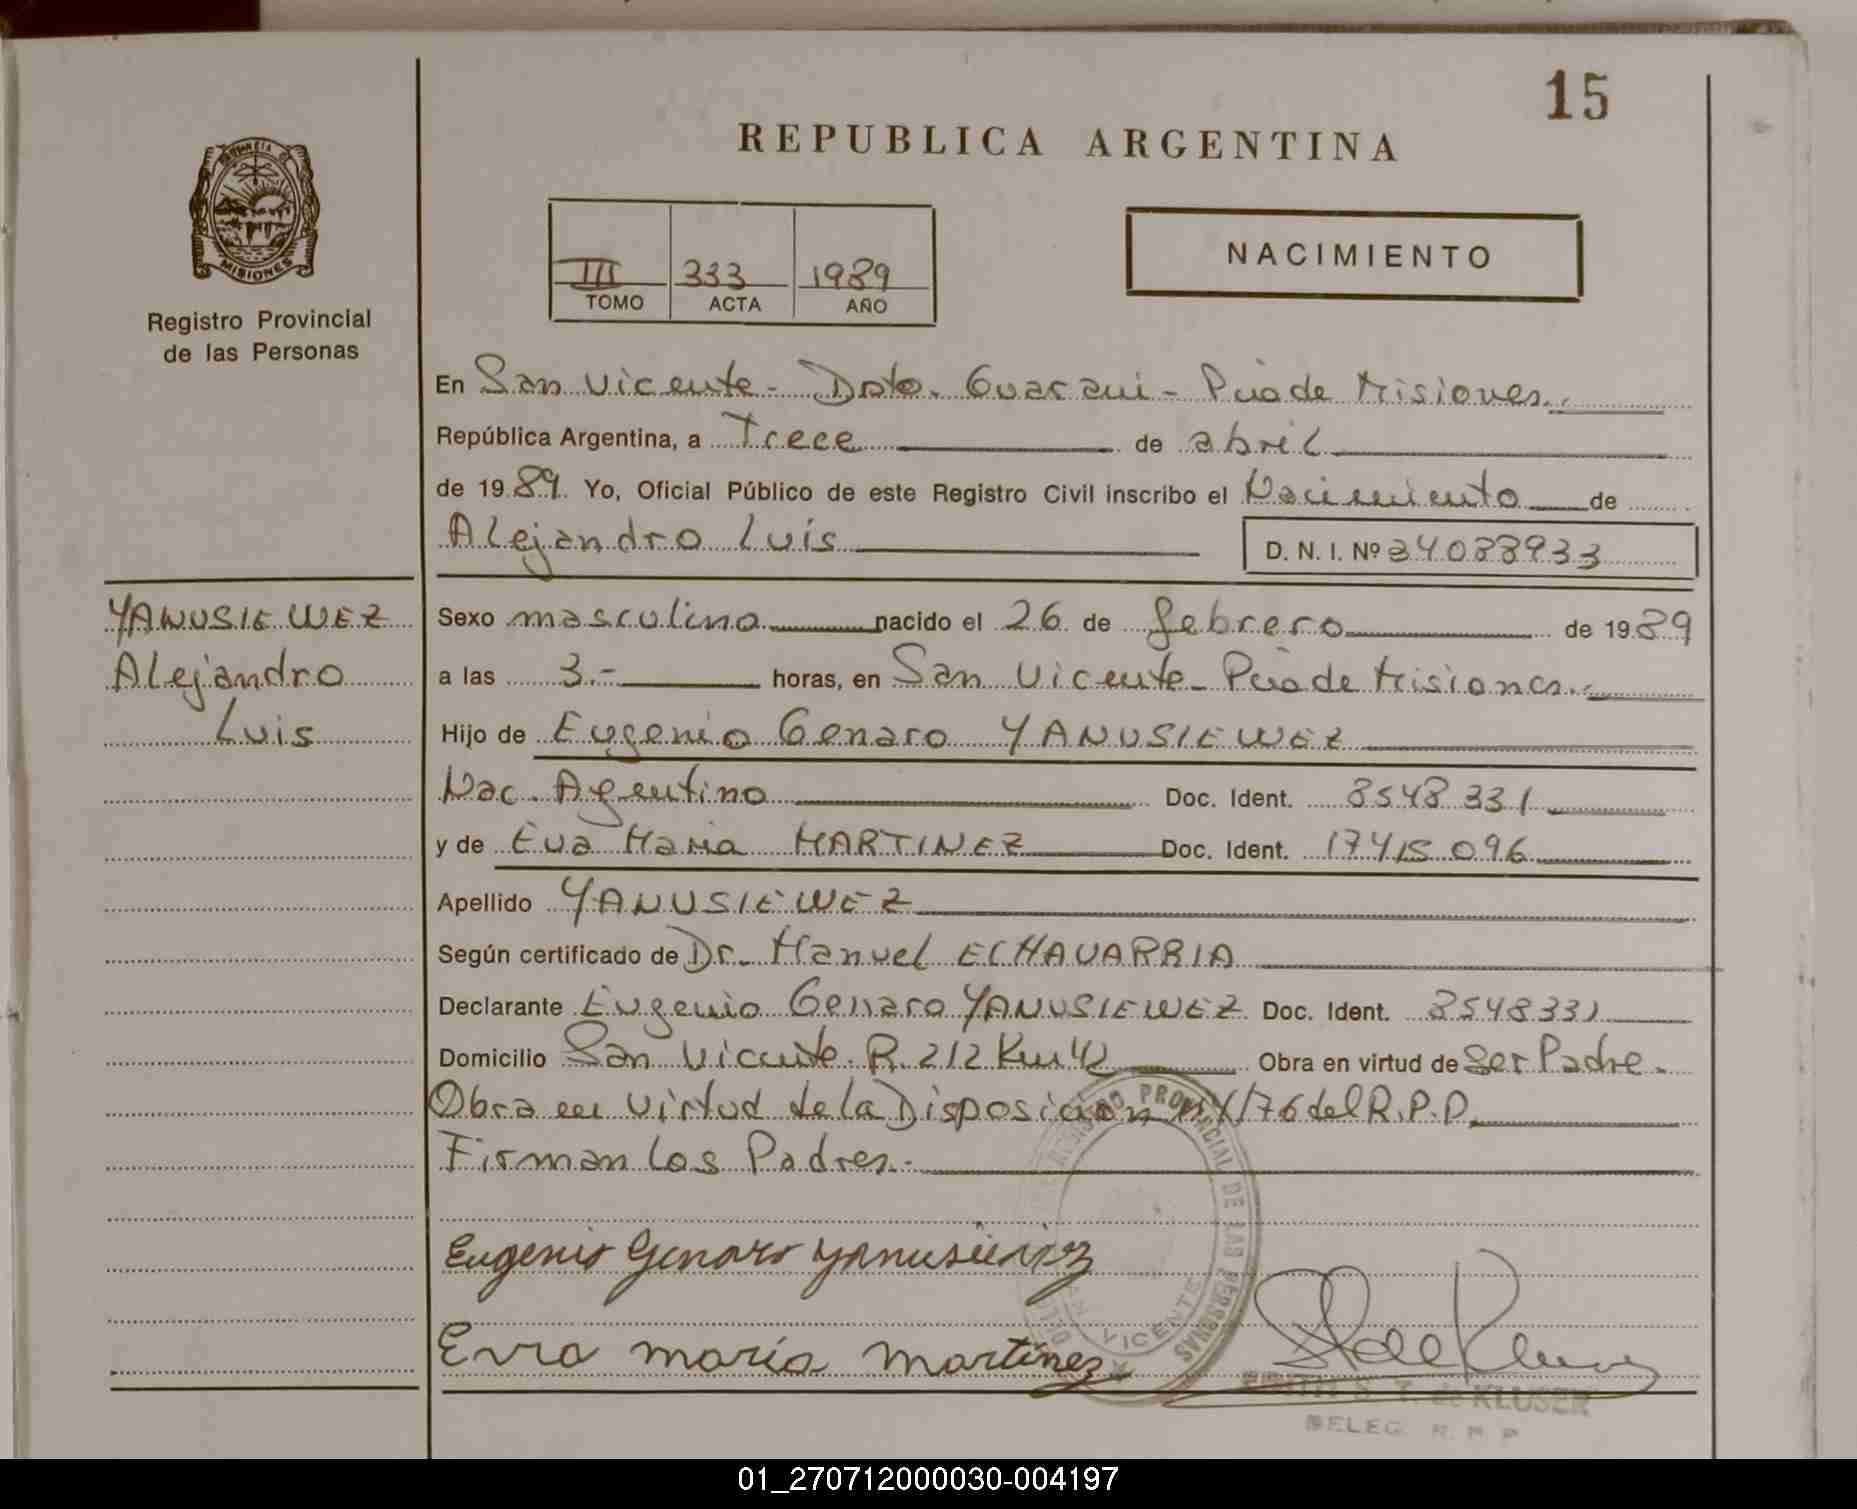 15
REPUBLICA ARGENTINA
PROVINCIA DE
MISIONES
Registro Provincial
de las Personas
III 333 1989
TOMO ACTA AÑO
NACIMIENTO
En San Vicente - Dpto. Guarani - Pcia de Misiones.
República Argentina, a Trece de abril
de 1989. Yo, Oficial Público de este Registro Civil inscribo el Nacimiento de
Alejandro Luis D. N. I. Nº 34088933
YANUSIEWEZ
Alejandro
Luis
Sexo masculino nacido el 26 de febrero de 1989
a las 3.- horas, en San Vicente - Pcia de Misiones.
Hijo de Eugenio Genaro YANUSIEWEZ
Nac. Agentino Doc. Ident. 8548331
y de Eva Maria MARTINEZ Doc. Ident. 17415096
Apellido YANUSIEWEZ
Según certificado de Dr. Manuel ECHAVARRIA
Declarante Eugenio Genaro YANUSIEWEZ Doc. Ident. 8548331
Domicilio San Vicente. R. 212 Km 42 Obra en virtud de ser Padre.
Obra en virtud de la Disposicion 1/76 del R.P.P.
Firman los Padres.-
REGISTRO PROVINCIAL DE LAS PERSONAS
SAN VICENTE
Eugenio Genaro Yanusiewez
Evva maría martínez
S. T. de KLUSER
DELEG. R. P. P.
01_270712000030-004197